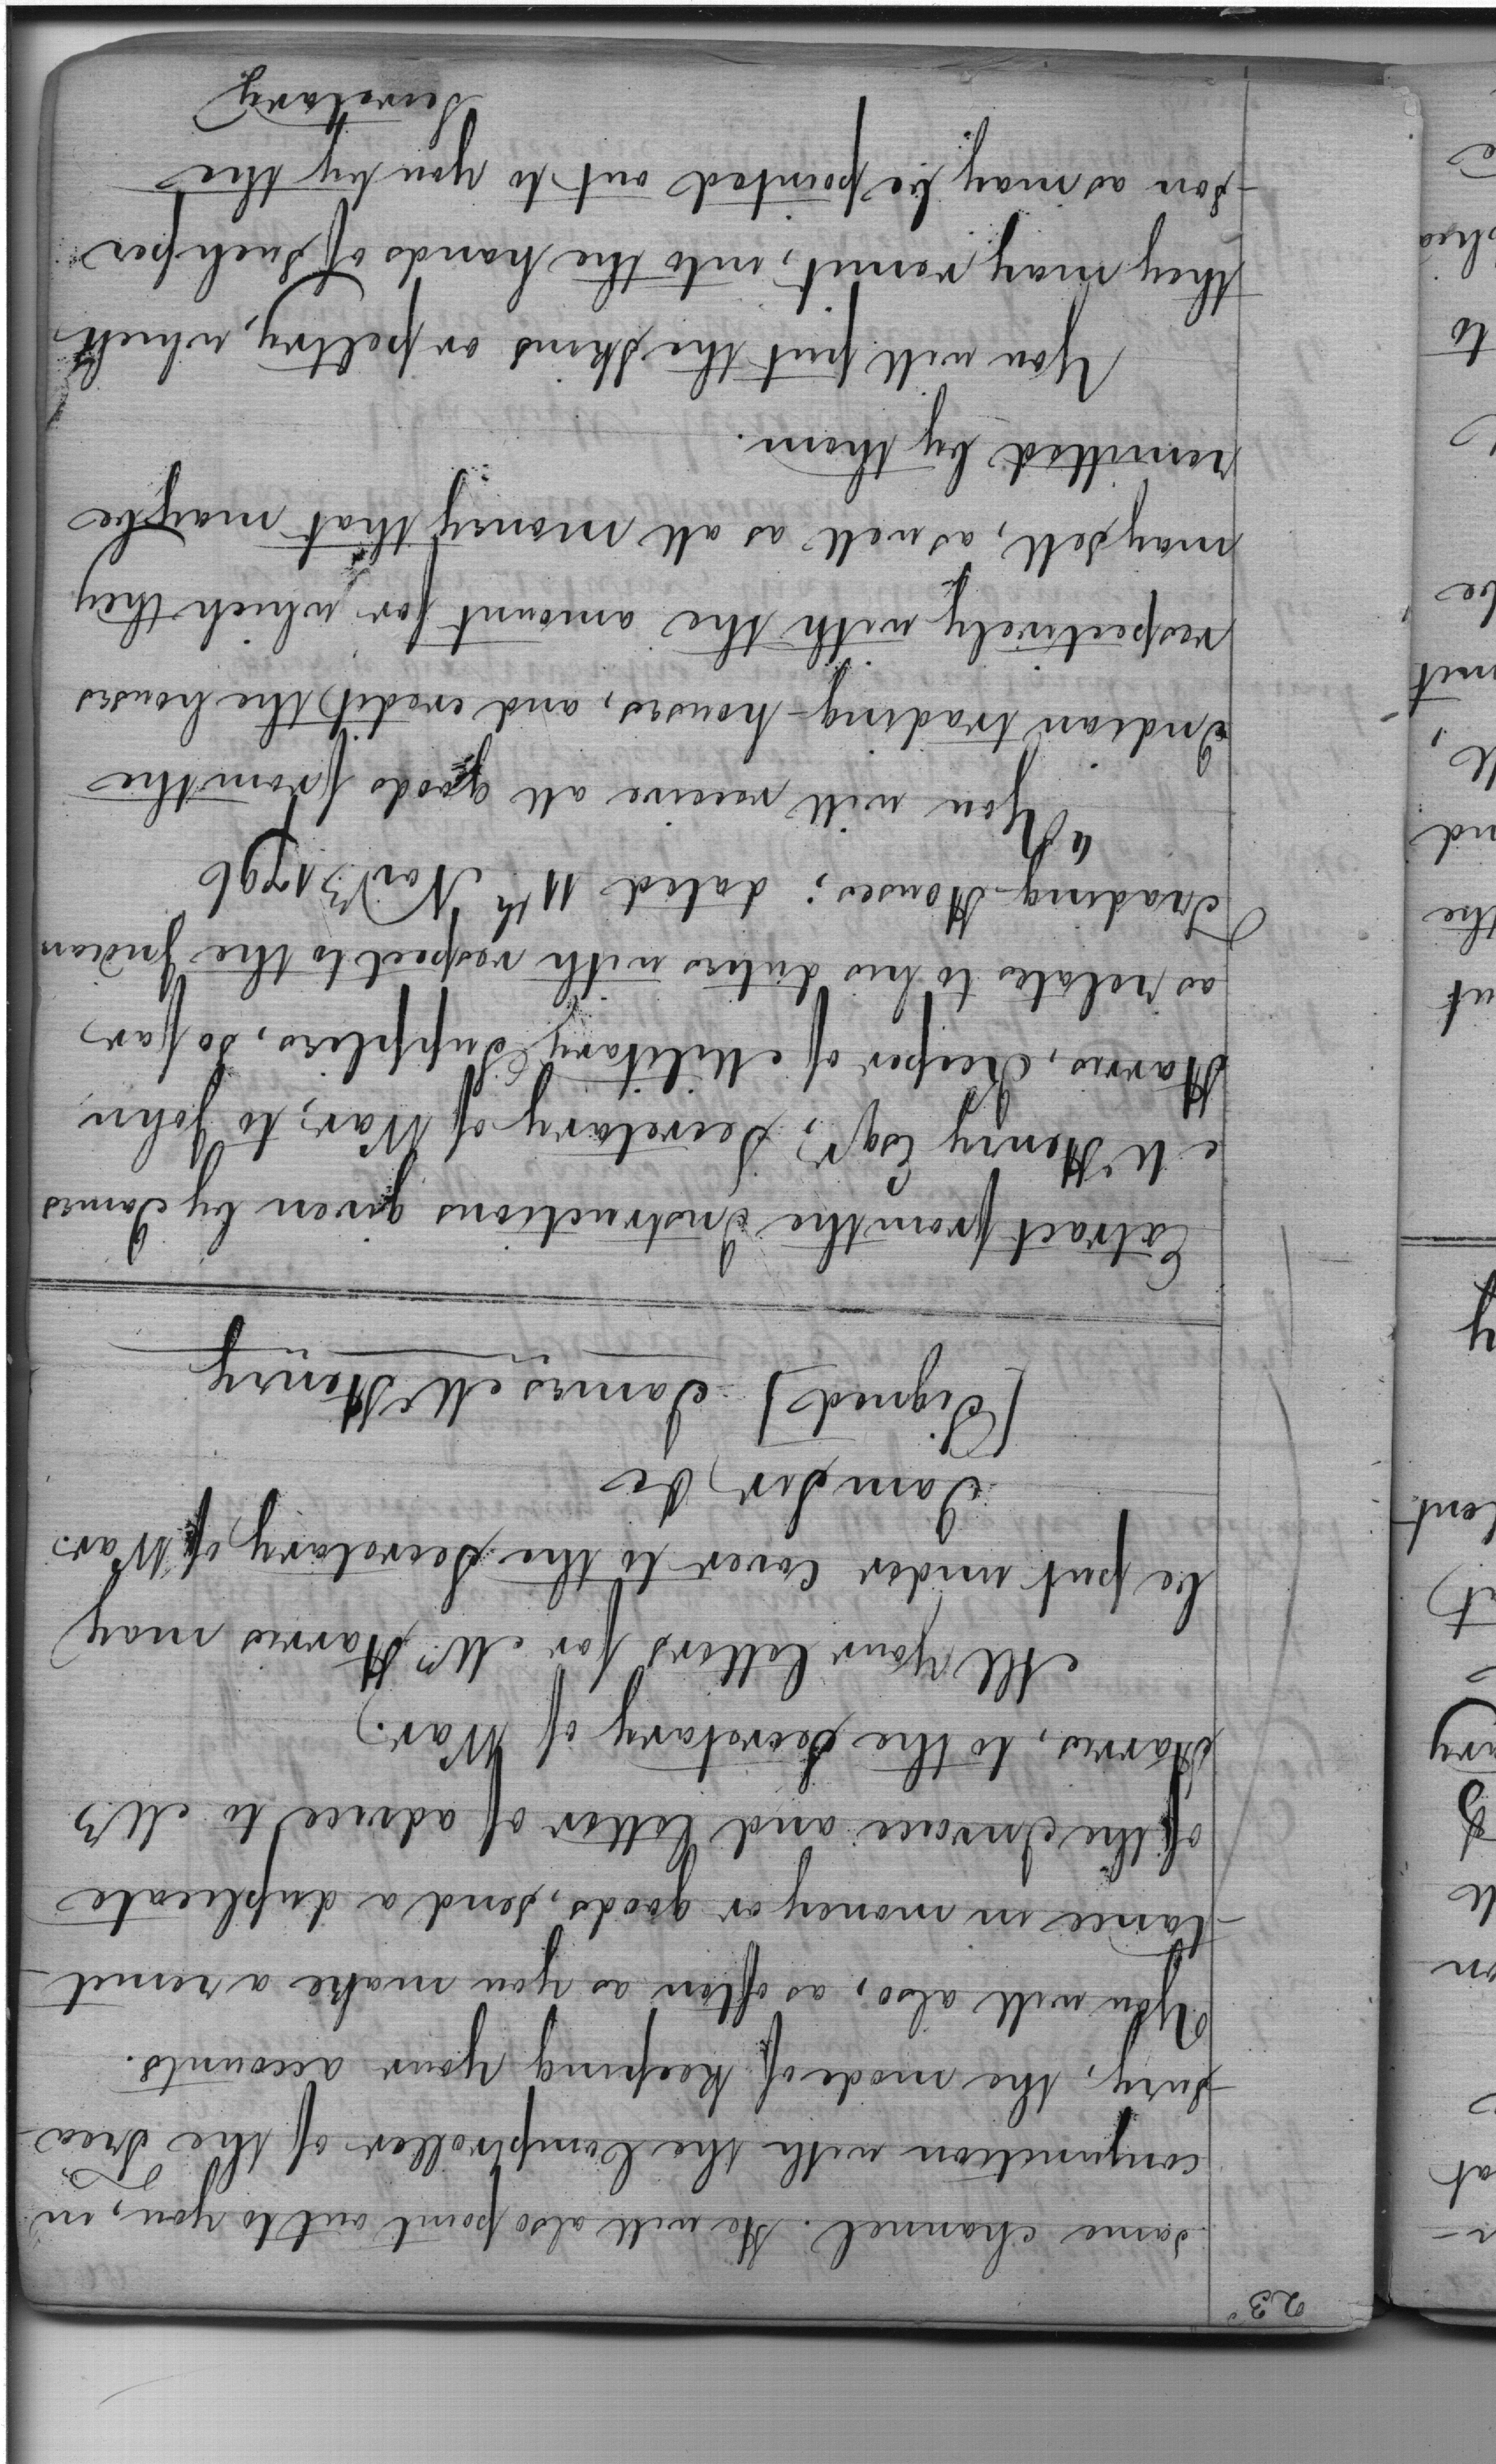 23
same channel. He will also point out to you, in
conjunction with the Comptroller of the Trea-
-sury, the mode of keeping your accounts.
You will also, as often as you make a remit-
-tance in money or goods, send a duplicate
of the Invoice and letter of advice to Mr
Harris, to the Secretary of War.
All your letters for Mr Harris may
be put under cover to the Secretary of War.
I am Sir, &c
[Signed] James McHenry
Extract from the Instructions given by James
McHenry Esqr, Secretary of War, to John
Harris, Keeper of Military Supplies, so far
as relates to his duties with respect to the Indian
Trading Houses; dated 11th Novr 1796
"You will receive all goods from the
Indian trading-houses, and credit the houses
respectively with the amount for which they
may sell, as well as all money that may be
remitted by them.
You will put the skins or peltry, which
they may remit, into the hands of such per
-son as may be pointed out to you by the
Secretary